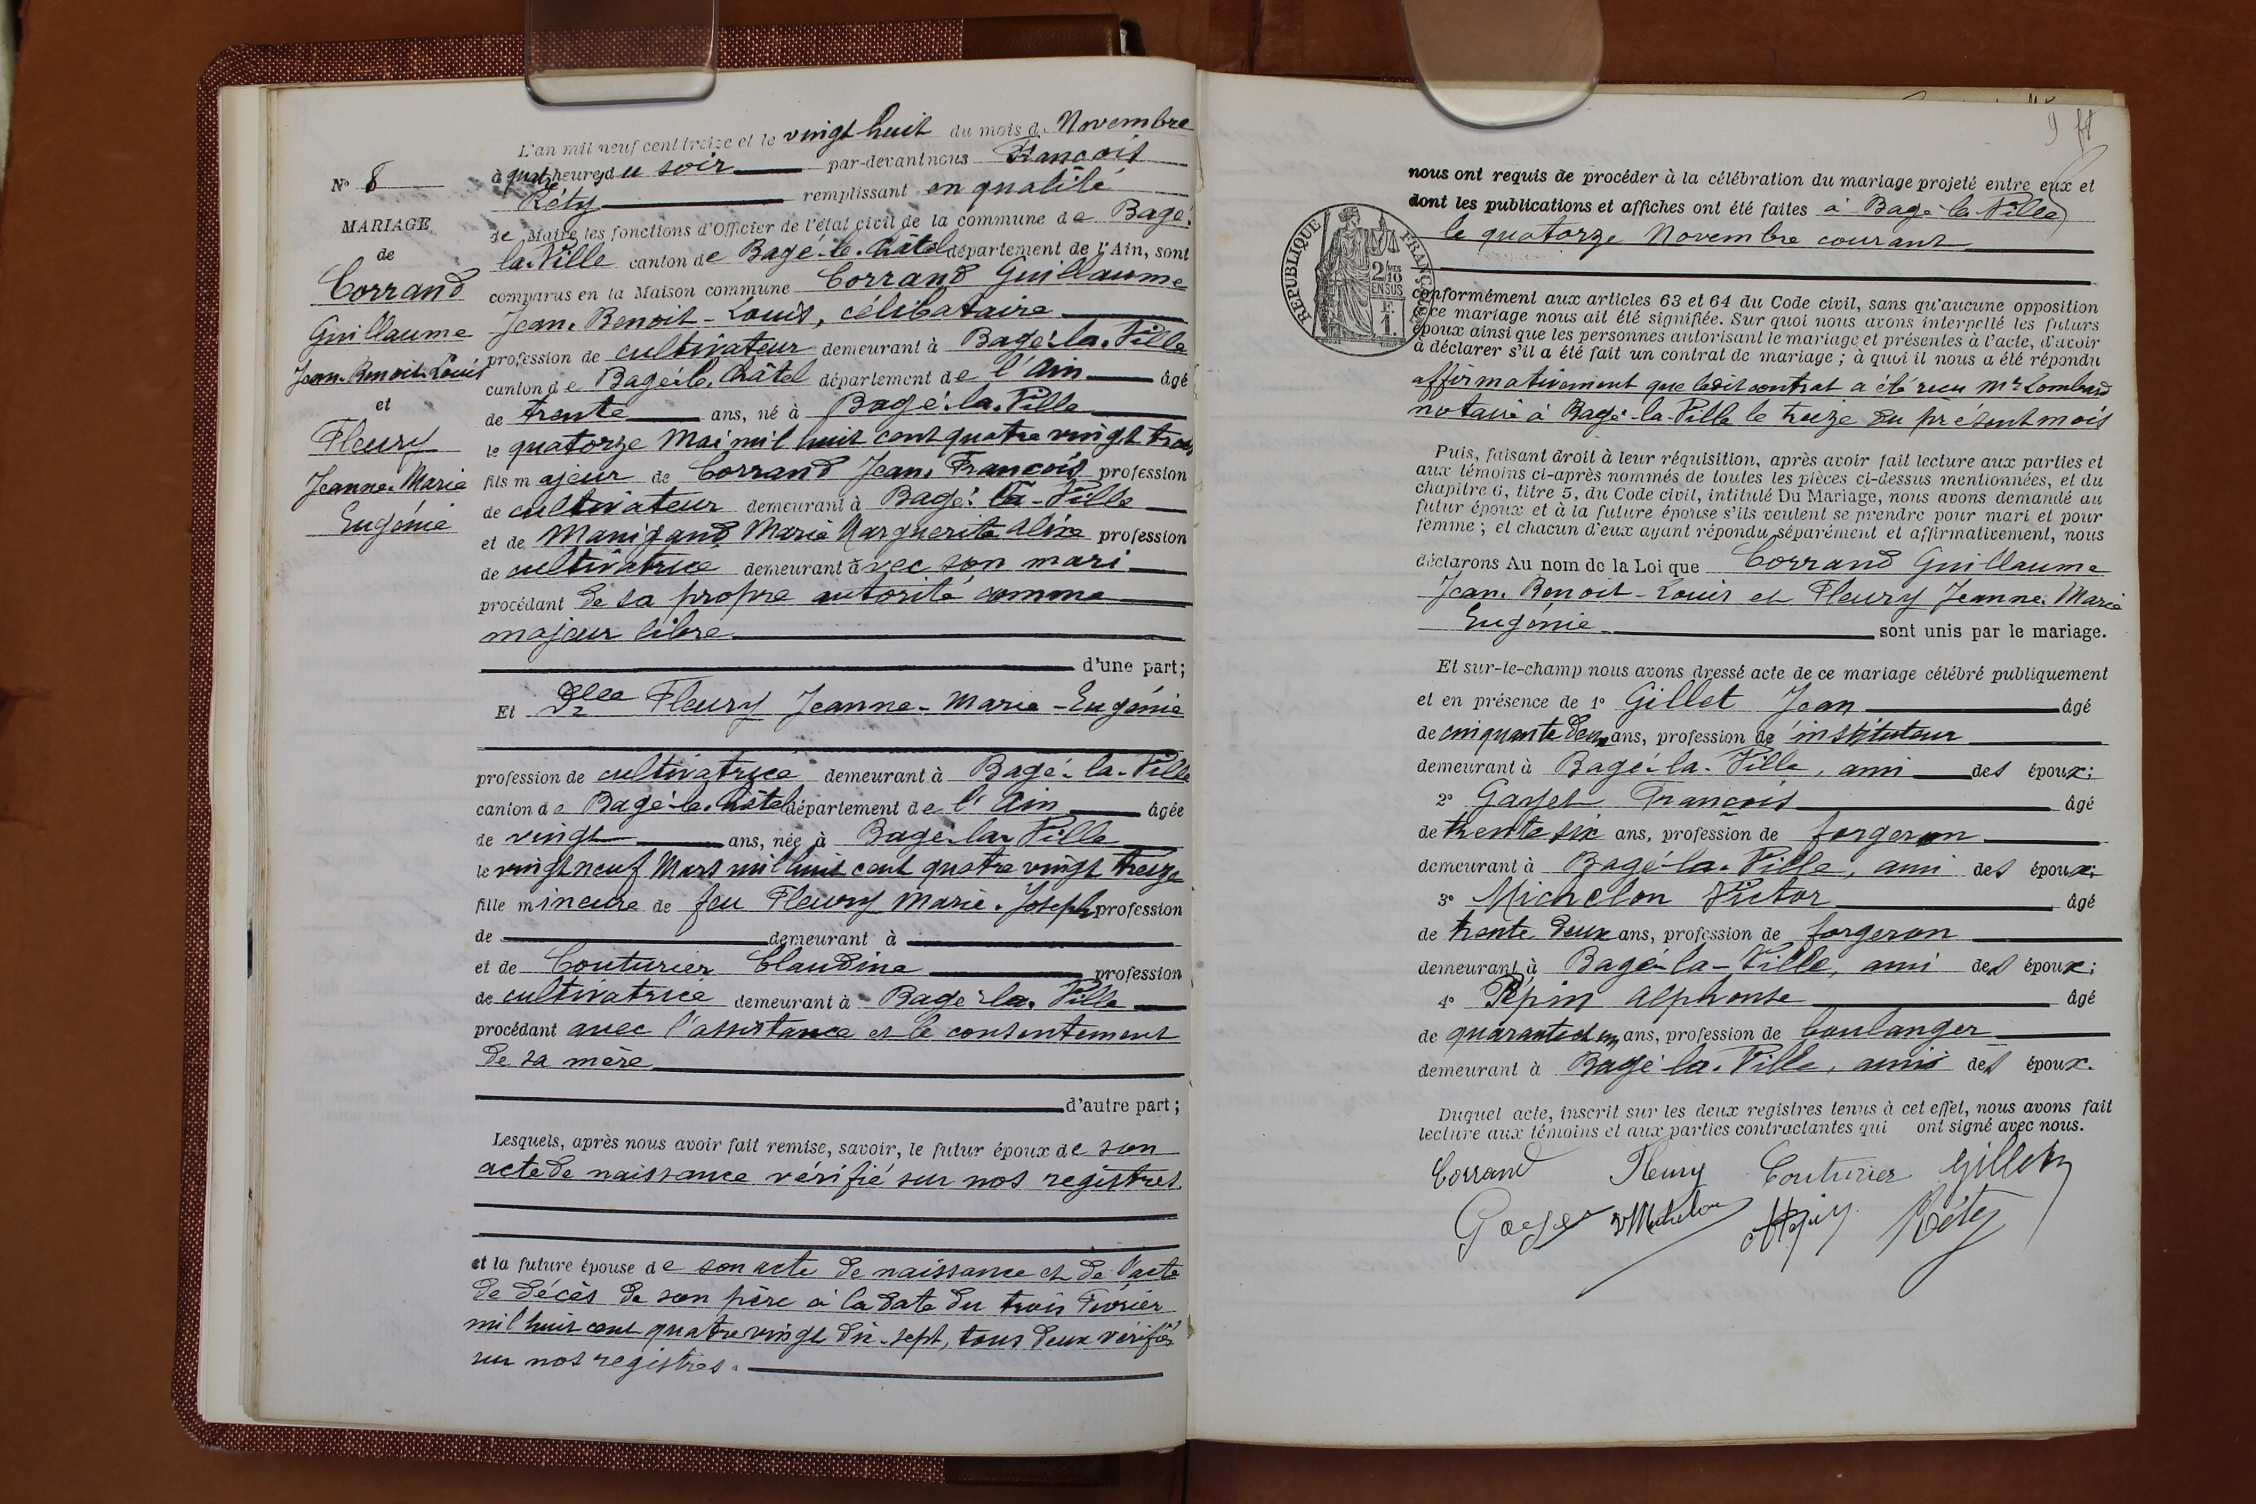 N° 8
MARIAGE
de
Corrand
Guillaume
Jean-Benoit-Louis
et
Fleury
Jeanne-Marie
Eugénie
L'an mil neuf cent treize et le vingt huit du mois de Novembre
à quatre heures du soir par-devant nous François
Réty remplissant en qualité
de Maire les fonctions d'Officier de l'état civil de la commune de Bagé-
la-Ville canton de Bagé-le-Châtel département de l'Ain, sont
comparus en la Maison commune Corrand Guillaume
Jean-Benoit-Louis, célibataire
profession de cultivateur demeurant à Bagé-la-Ville
canton de Bagé-le-Châtel département de l'Ain âgé
de trente ans, né à Bagé-la-Ville
le quatorze Mai mil huit cent quatre vingt trois
fils majeur de Corrand Jean-François profession
de cultivateur demeurant à Bagé-la-Ville
et de Manigand Marie Marguerite Alixe profession
de cultivatrice demeurant avec son mari
procédant de sa propre autorité comme
majeur libre
d'une part;
Et Dlle Fleury Jeanne-Marie-Eugénie
profession de cultivatrice demeurant à Bagé-la-Ville
canton de Bagé-le-Châtel département de l'Ain âgée
de vingt ans, née à Bagé-la-Ville
le vingt neuf Mars mil huit cent quatre vingt treize
fille mineure de feu Fleury Marie-Joseph profession
de demeurant à
et de Couturier Claudine profession
de cultivatrice demeurant à Bagé-la-Ville
procédant avec l'assistance et le consentement
de sa mère
d'autre part;
Lesquels, après nous avoir fait remise, savoir, le futur époux de son
acte de naissance vérifié sur nos registres
et la future épouse de son acte de naissance et de l'acte
de décès de son père à la date du trois Février
mil huit cent quatre vingt dix-sept, tous deux vérifiés
sur nos registres.
9
nous ont requis de procéder à la célébration du mariage projeté entre eux et
dont les publications et affiches ont été faites à Bagé-la-Ville
le quatorze Novembre courant
RÉPUBLIQUE FRANÇAISE
2/10
EN SUS
1 F.
conformément aux articles 63 et 64 du Code civil, sans qu'aucune opposition
à ce mariage nous ait été signifiée. Sur quoi nous avons interpellé les futurs
époux ainsi que les personnes autorisant le mariage et présentes à l'acte, d'avoir
à déclarer s'il a été fait un contrat de mariage; à quoi il nous a été répondu
affirmativement que ledit contrat a été reçu Mr Lombard
notaire à Bagé-la-Ville le treize du présent mois
Puis, faisant droit à leur réquisition, après avoir fait lecture aux parties et
aux témoins ci-après nommés de toutes les pièces ci-dessus mentionnées, et du
chapitre 6, titre 5, du Code civil, intitulé Du Mariage, nous avons demandé au
futur époux et à la future épouse s'ils veulent se prendre pour mari et pour
femme; et chacun d'eux ayant répondu séparément et affirmativement, nous
déclarons Au nom de la Loi que Corrand Guillaume
Jean-Benoit-Louis et Fleury Jeanne-Marie
Eugénie sont unis par le mariage.
Et sur-le-champ nous avons dressé acte de ce mariage célébré publiquement
et en présence de 1° Gillet Jean âgé
de cinquante deux ans, profession de instituteur
demeurant à Bagé-la-Ville, ami des époux;
2° Gayet François âgé
de trente six ans, profession de forgeron
demeurant à Bagé-la-Ville, ami des époux;
3° Michelon Victor âgé
de trente deux ans, profession de forgeron
demeurant à Bagé-la-Ville, ami des époux;
4° Pépin Alphonse âgé
de quarante et un ans, profession de boulanger
demeurant à Bagé-la-Ville, ami des époux.
Duquel acte, inscrit sur les deux registres tenus à cet effet, nous avons fait
lecture aux témoins et aux parties contractantes qui ont signé avec nous.
Corrand Fleury Couturier Gillet
Gayet VMichelon APépin Réty